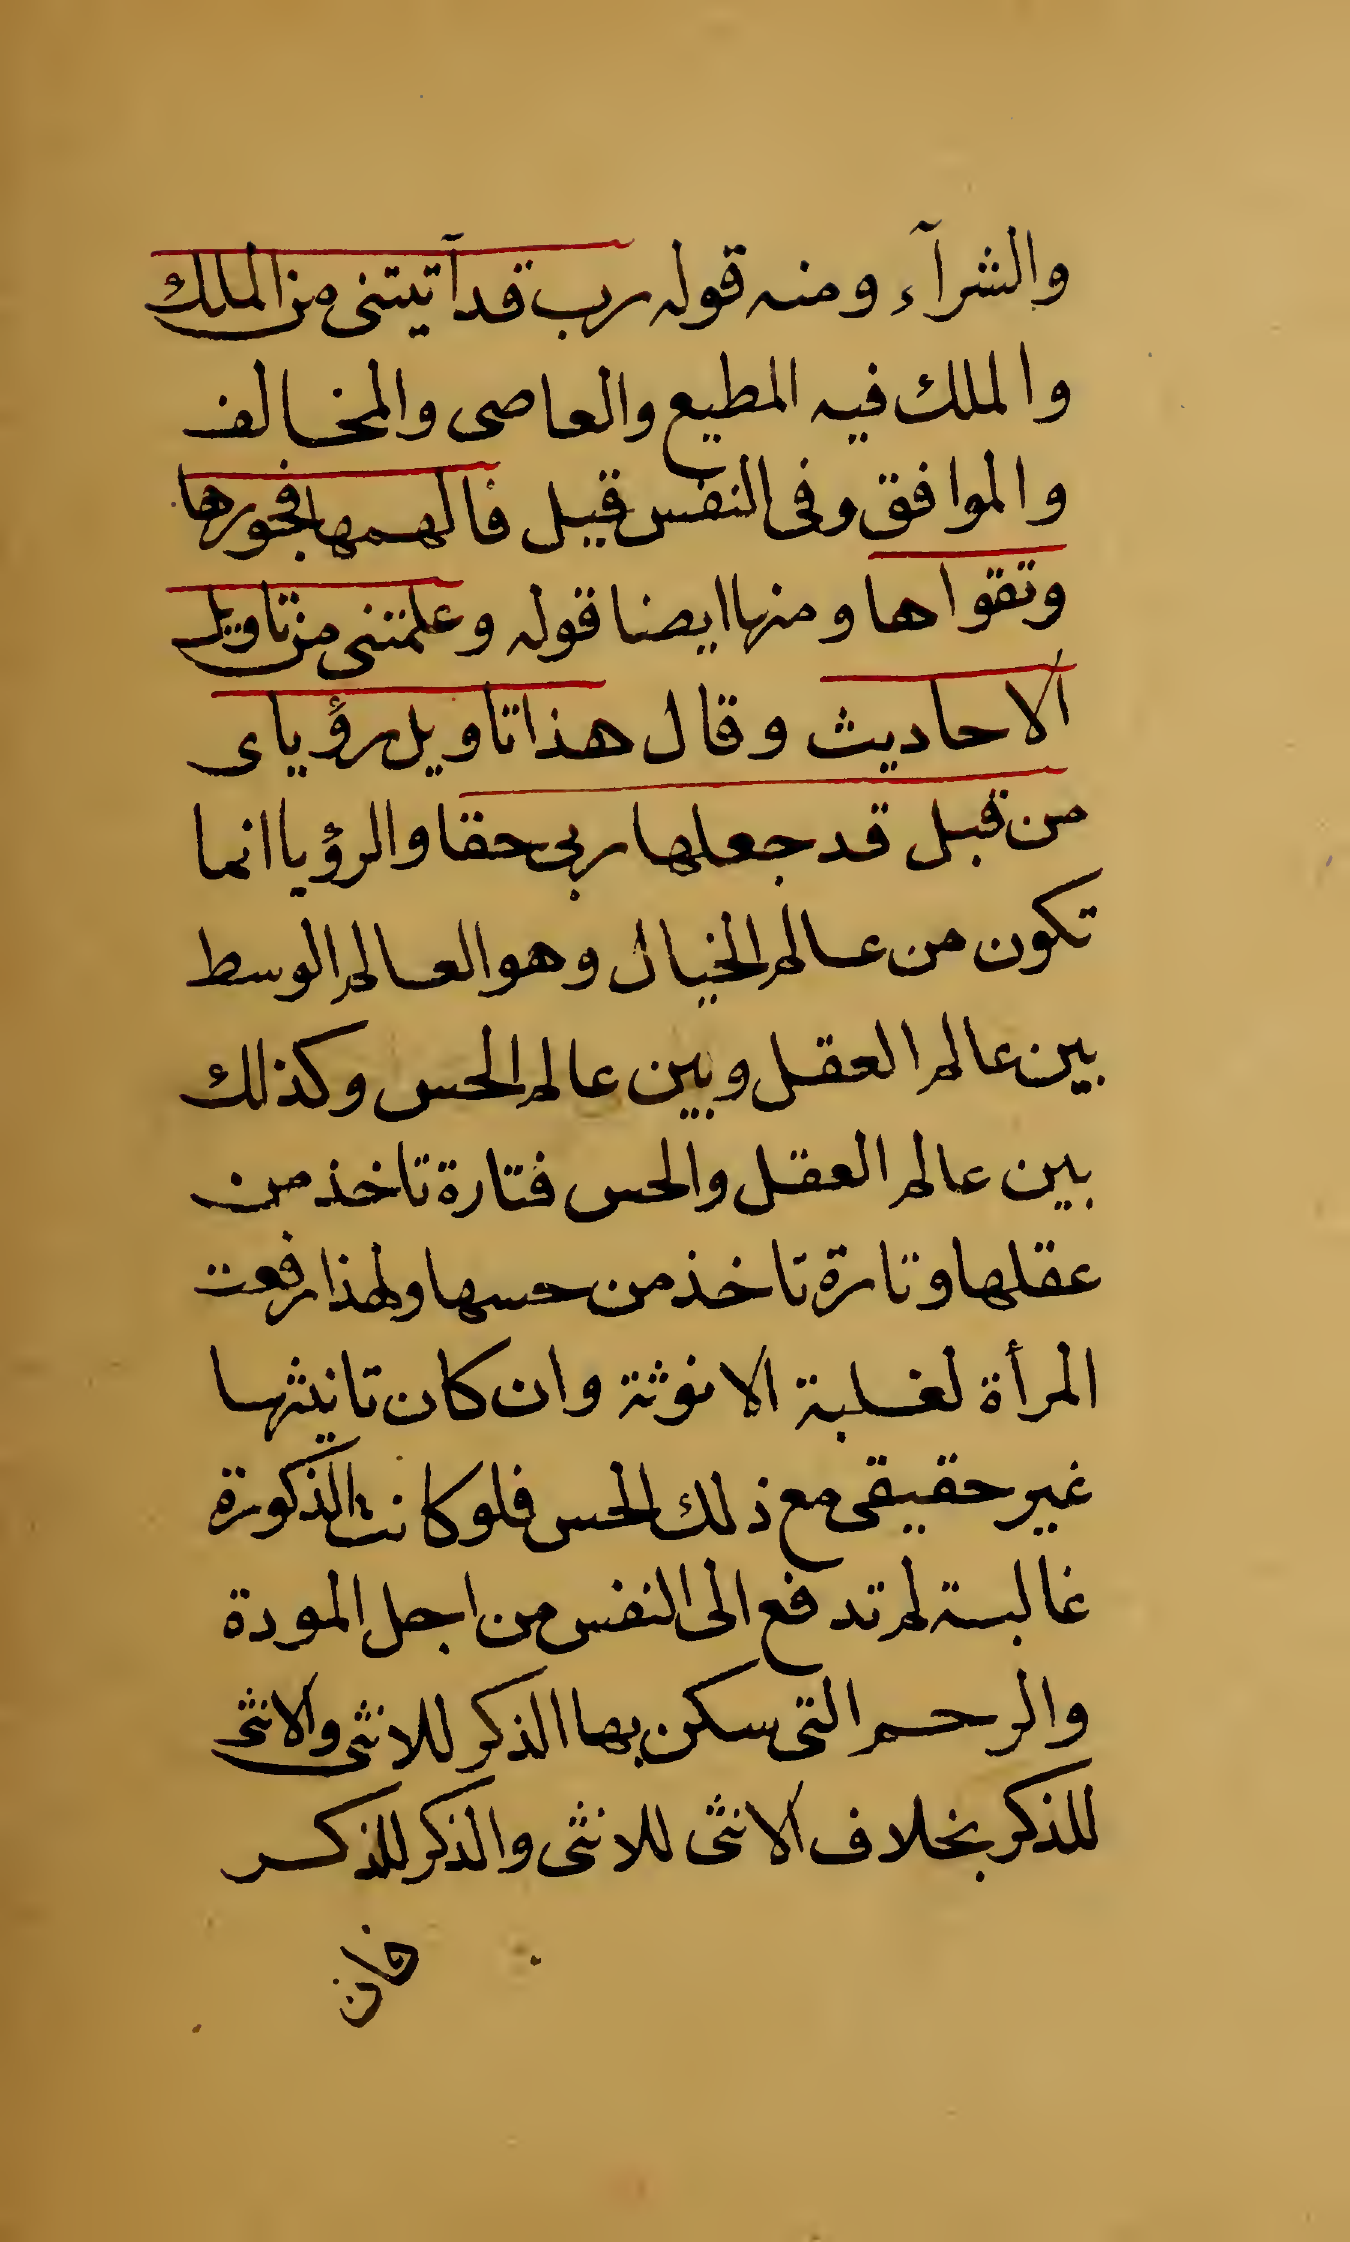 والشرآء ومنه قوله رب قد آتيتنى من الملك
والملك فيه المطيع والعاصى والمخالف
والموافق وفى النفس قيل فالهمها فجورها
وتقواها ومنها ايضا قوله وعلمتنى من تاويل
الاحاديث وقال هذا تاويل رؤياى
من قبل قد جعلها ربى حقا والرؤيا انما
تكون من عالم الخيال وهو العالم الوسط
بين عالم العقل وبين عالم الحس وكذلك
بين عالم العقل والحس فتارة تاخذ من
عقلها وتارة تاخذ من حسها ولهذا رفعت
المرأة لغلبة الانوثة وان كان تانيثها
غير حقيقى مع ذلك الحس فلو كانت الذكورة
غالبة لم تدفع الى النفس من اجل المودة
والرحم التى سكن بها الذكر للانثى والانثى
للذكر بخلاف الانثى للانثى والذكر للذكر
فان